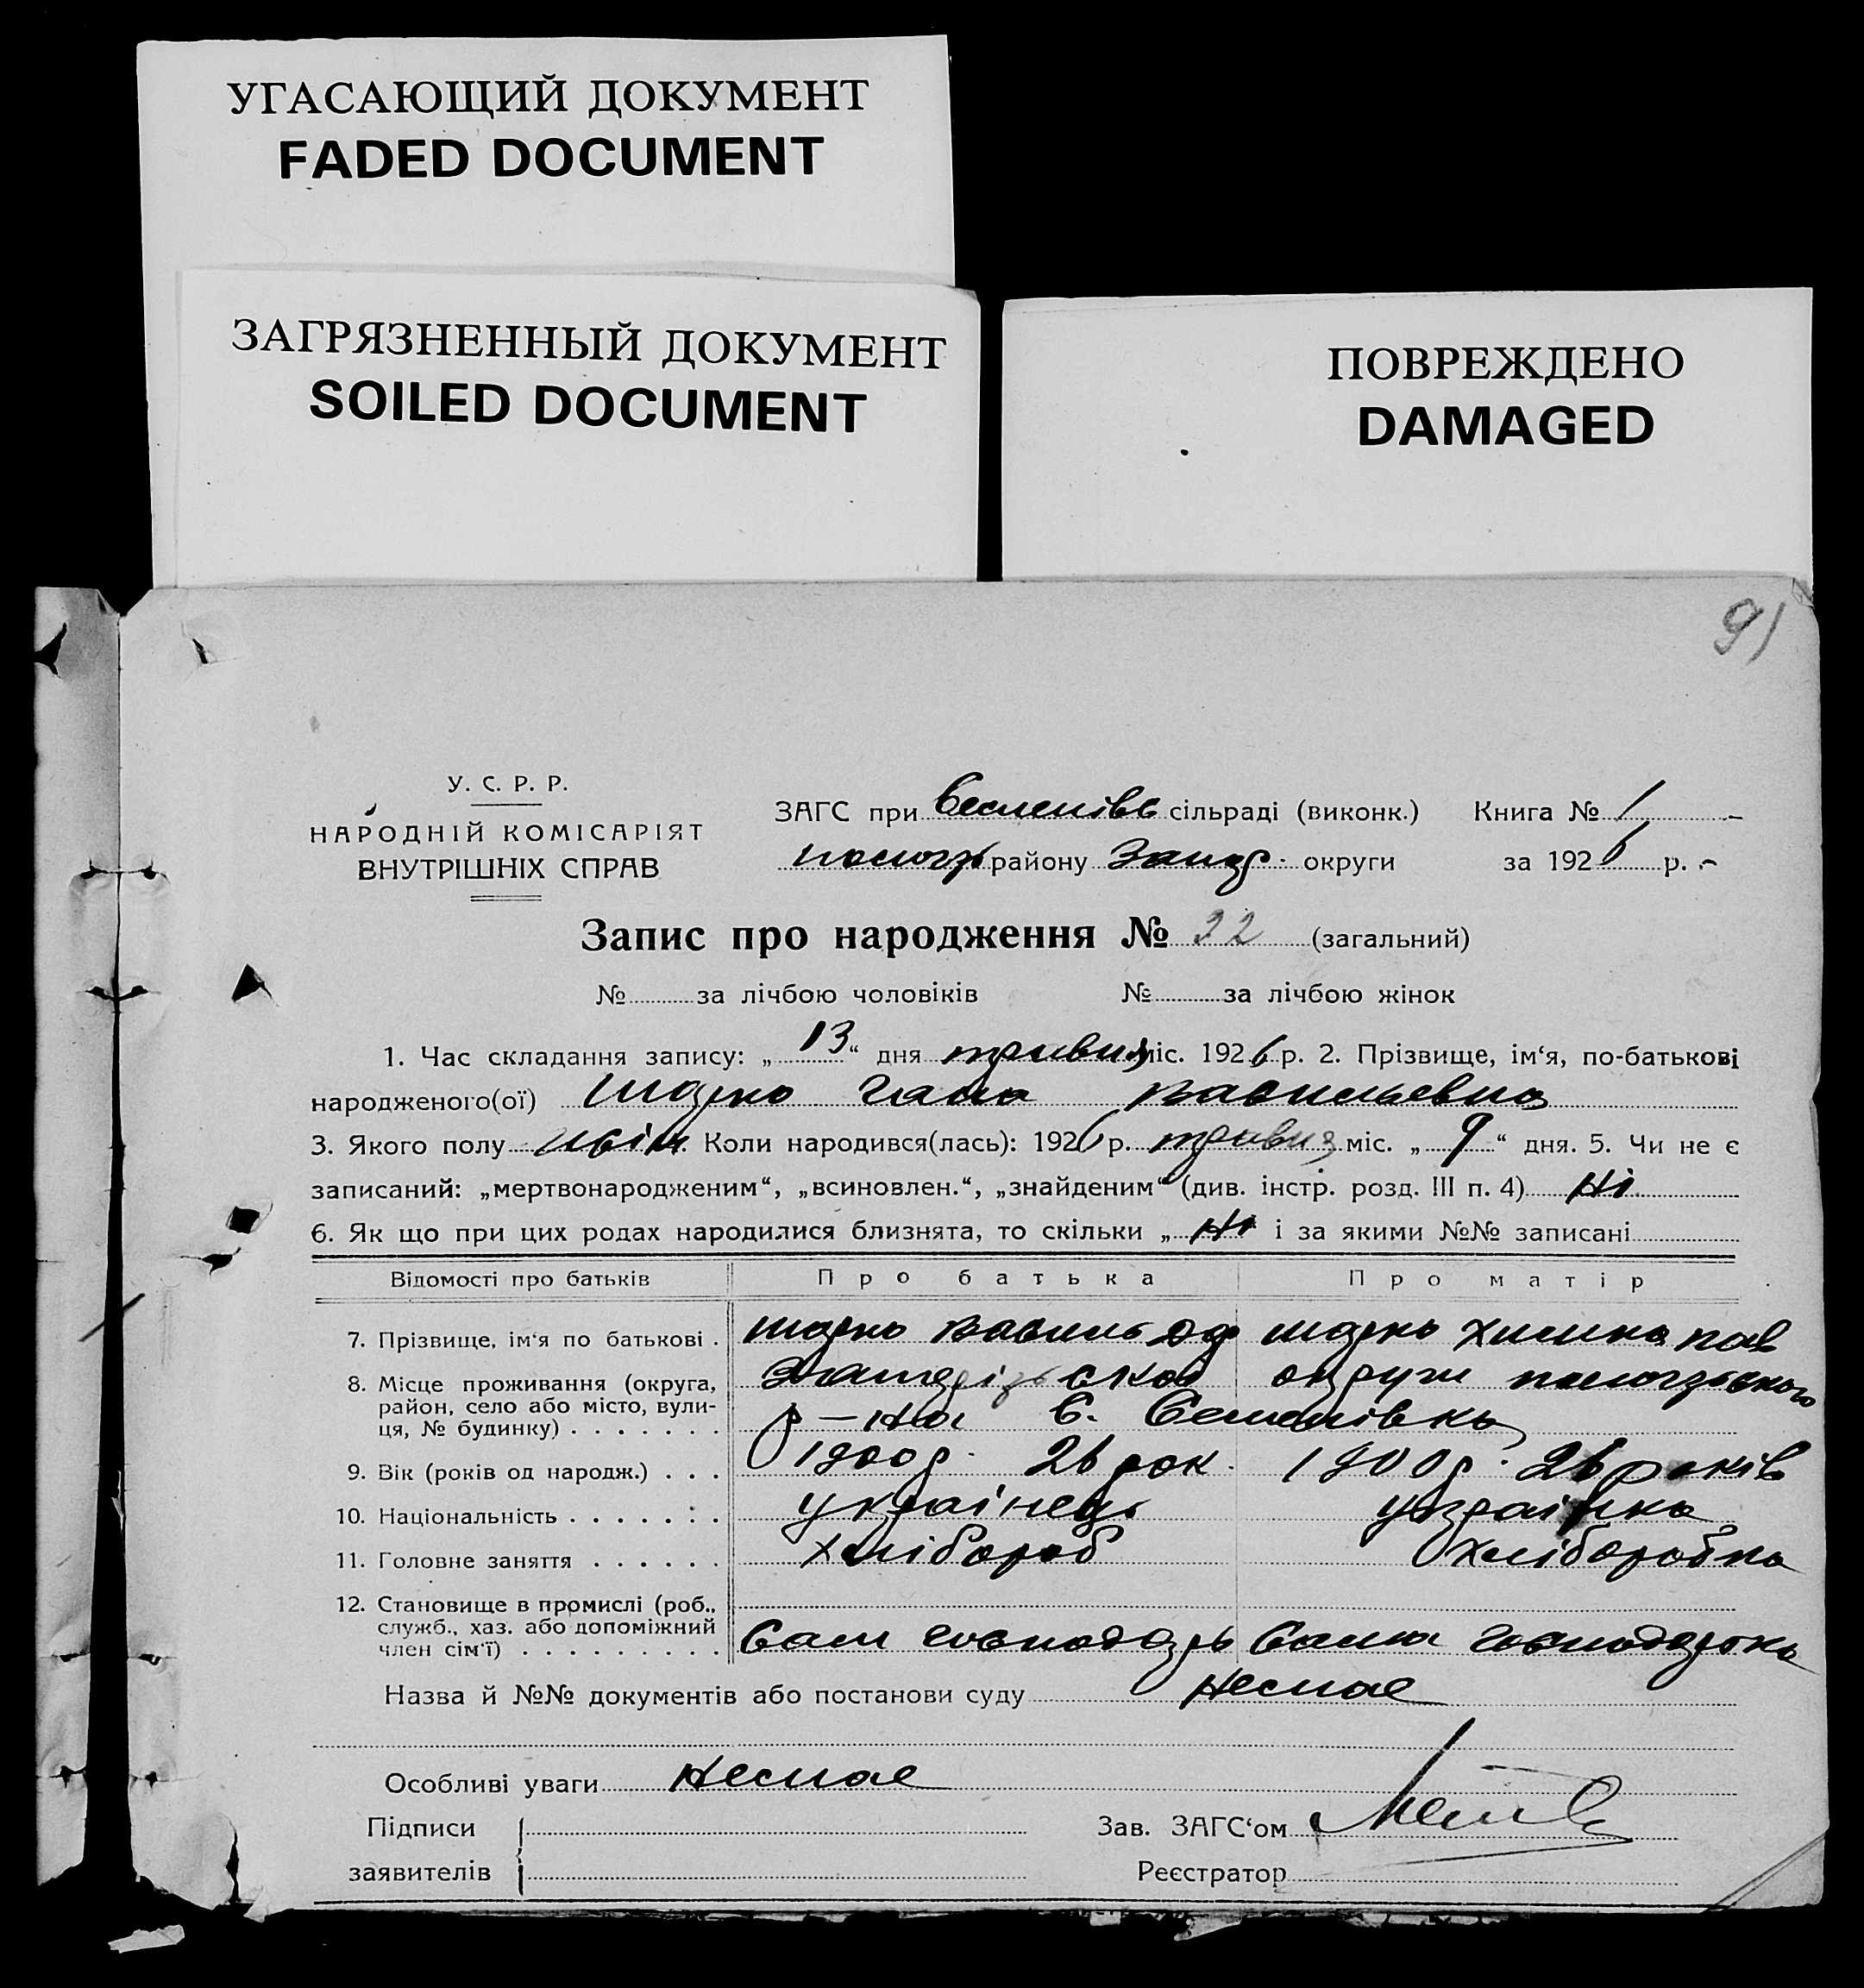 УГАСАЮЩИЙ ДОКУМЕНТ
FADED DOCUMENT
ЗАГРЯЗНЕННЫЙ ДОКУМЕНТ
SOILED DOCUMENT
ПОВРЕЖДЕНО
DAMAGED
91
У. С. Р. Р.
НАРОДНІЙ КОМІСАРІЯТ
ВНУТРІШНІХ СПРАВ
ЗАГС при сільраді (виконк.) Книга № 1
району Запор. округи за 1926 р.
Запис про народження № 22 (загальний)
№ за лічбою чоловіків № за лічбою жінок
1. Час складання запису: „ 13 “ дня травня міс. 1926 р. 2. Прізвище, ім‘я, по-батькові
народженого(ої) Шарко Васильевна
3. Якого полу Коли народився(лась): 1926 р. травня міс. „ 9 “ дня. 5. Чи не є
записаний: „мертвонародженим“, „всиновлен.“, „знайденим“ (див. інстр. розд. III п. 4) Ні
6. Як що при цих родах народилися близнята, то скільки „ Ні і за якими №№ записані
Відомості про батьків Про батька Про матір
7. Прізвище, ім‘я по батькові . Шарко Василь Шарко пав
8. Місце проживання (округа, округи
район, село або місто, вули-
ця, № будинку) . . . . . . . р-на С. Семенівка
9. Вік (років од народж.) . . . 1900р. 26 рок. 1900р. 26 років
10. Національність . . . . . . . українець українка
11. Головне заняття . . . . . . хлібороб хліборобка
12. Становище в промислі (роб.,
служб., хаз. або допоміжний
член сім‘ї) . . . . . . . . . Сам господарь Сама господарка
Назва й №№ документів або постанови суду Немае
Особливі уваги Немае
Підписи
заявителів
Зав. ЗАГС‘ом
Реєстратор